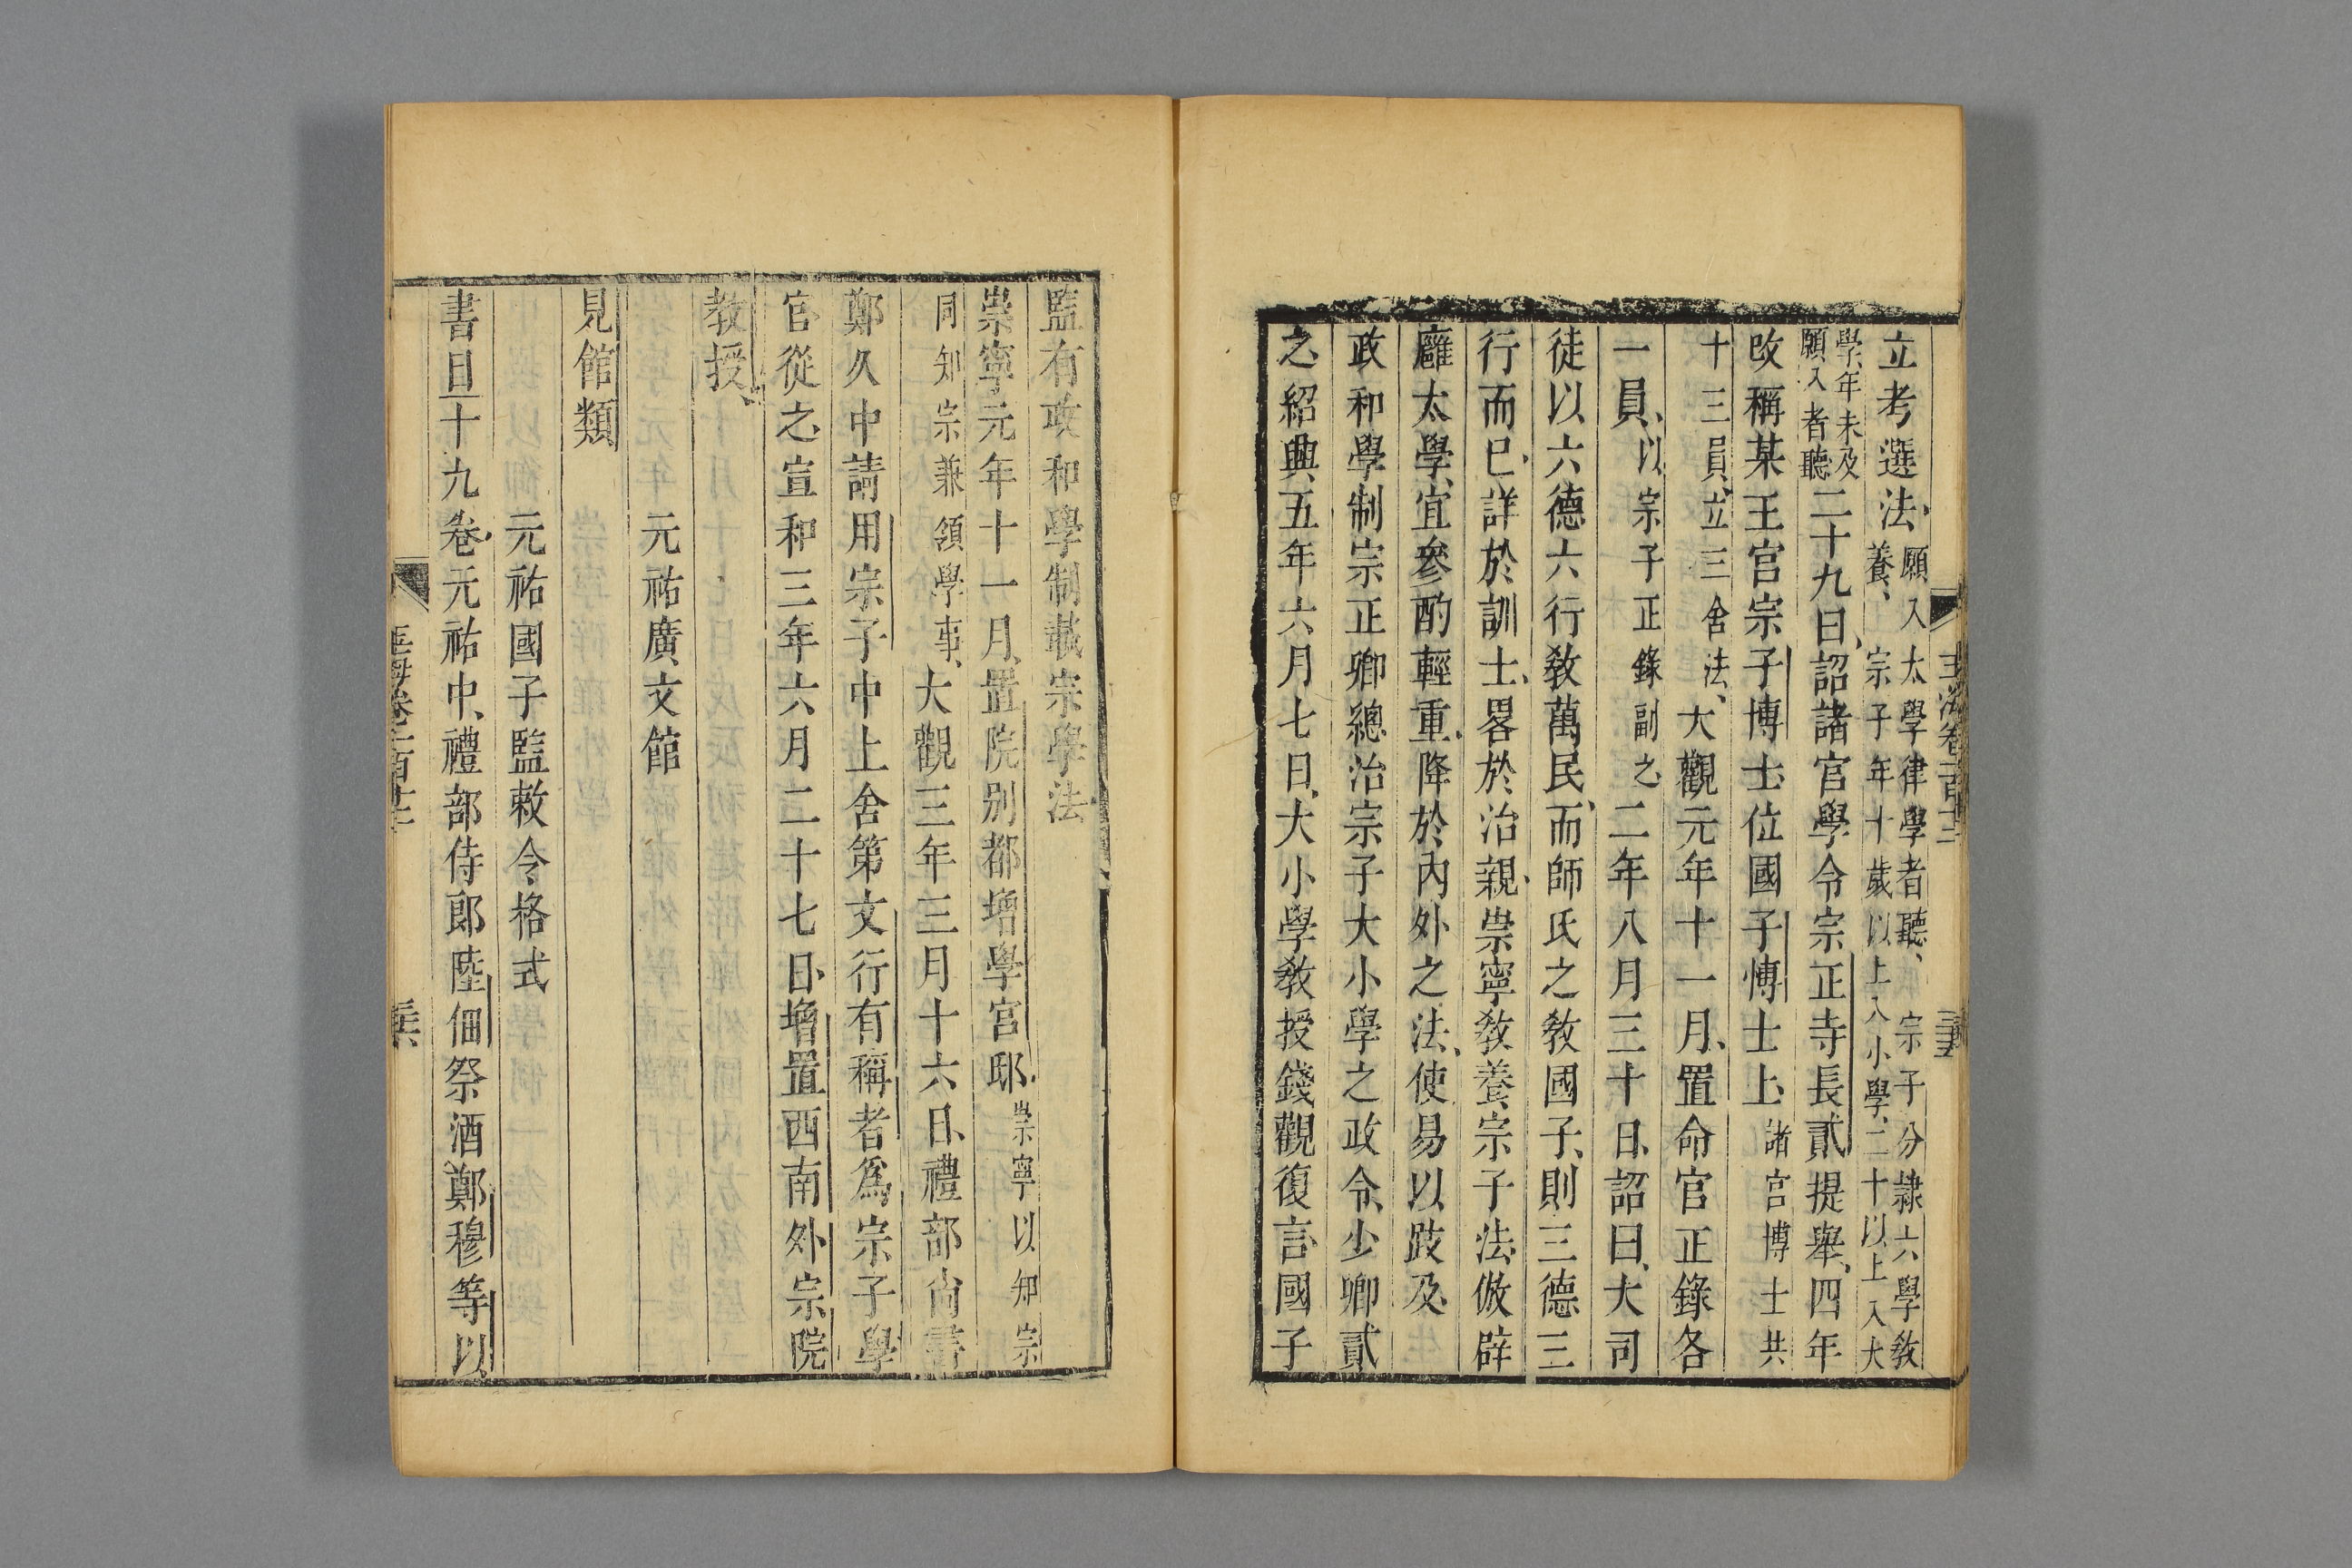 立考選法願入太學律學者聽宗子分隷六學敎
養宗子年十歲以上入小學二十以上入大
學年未及
願入者聽二十九日詔諸官學令宗正寺長貳提舉四年
改稱某王宮宗子博士位國子博士上諸宮博士共
十三員立三舍法大觀元年十一月置命官正錄各
一員以宗子正錄副之二年八月三十日詔曰大司
徒以六德六行敎萬民而師氏之敎國子則三德三
行而已詳於訓士畧於治親崇寧敎養宗子法倣辟
廱太學宜參酌輕重降於內外之法使易以跂及
政和學制宗正卿總治宗子大小學之政令少卿貳
之紹興五年六月七日大小學敎授錢觀復言國子
監有政和學制載宗學法
崇寧元年十一月置院別都增學宮邸崇寧以知宗
同知宗兼領學事大觀三年三月十六日禮部尚書
鄭久中請用宗子中上舍第文行有稱者爲宗子學
官從之宣和三年六月二十七日增置西南外宗院
教授
元祐廣文館
見館類
元祐國子監敕令格式
書目十九卷元祐中禮部侍郎陸佃祭酒鄭穆等以